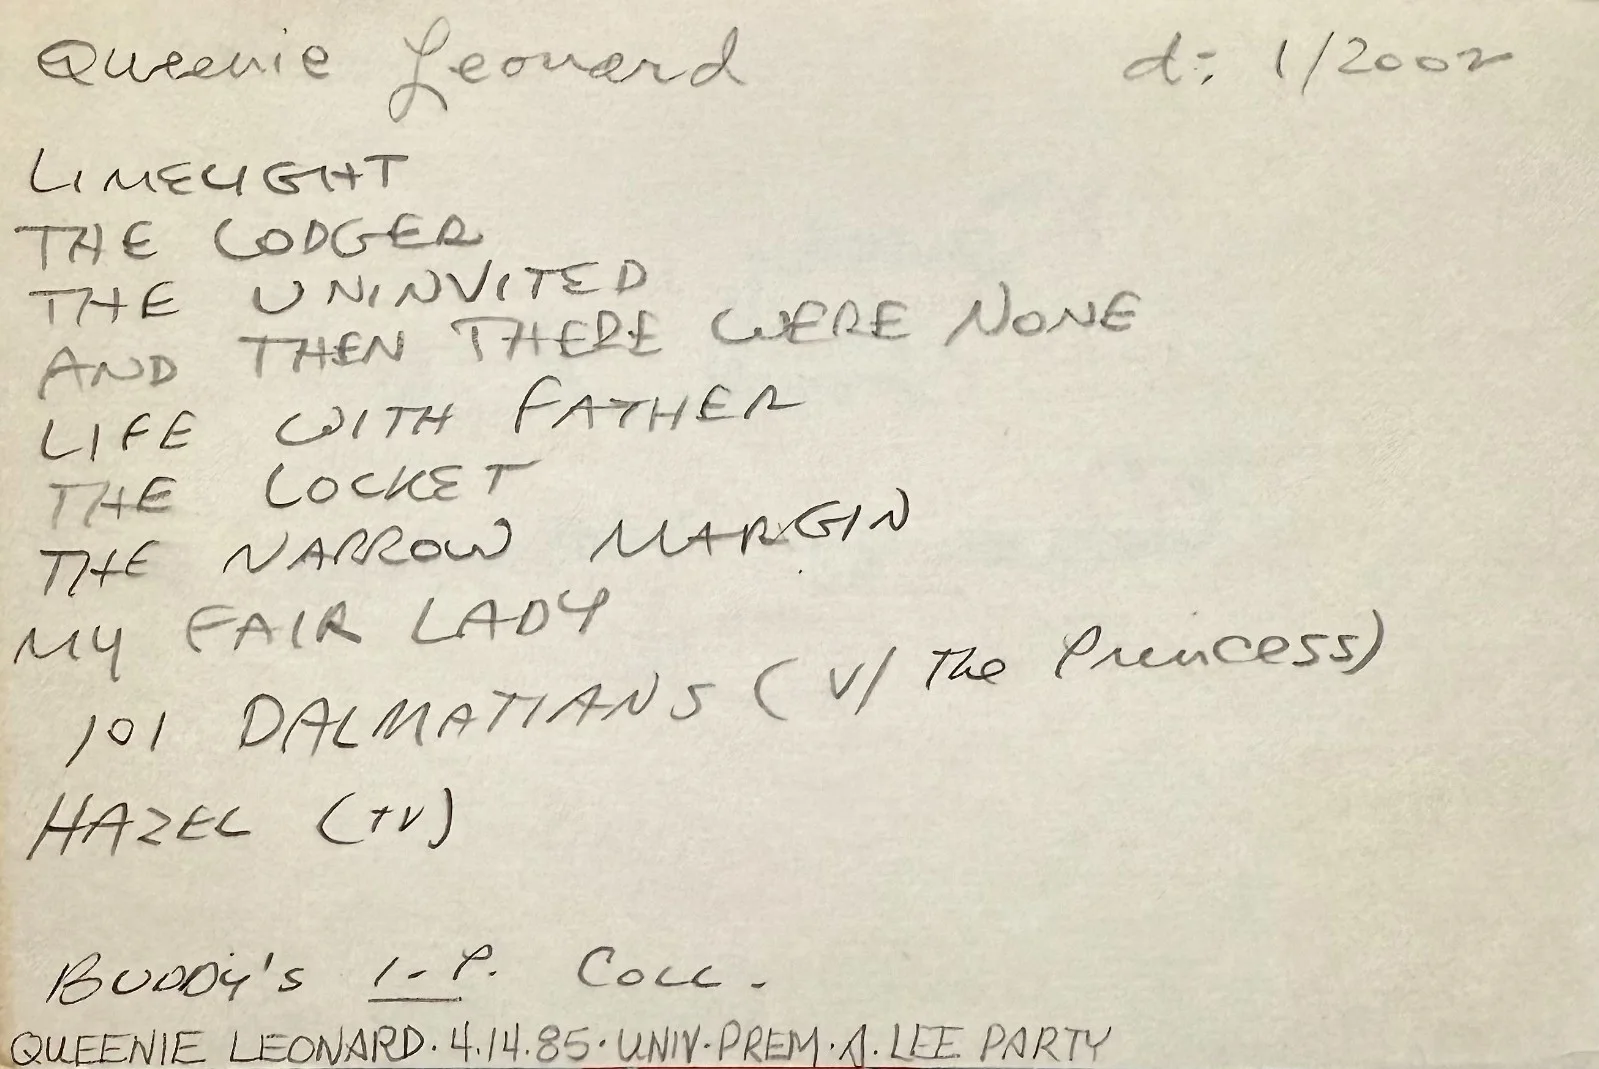 Queenie Leonard d: 1/2002
LIMELIGHT
THE LODGER
THE UNINVITED
AND THEN THERE WERE NONE
LIFE WITH FATHER
THE LOCKET
THE NARROW MARGIN
MY FAIR LADY
101 DALMATIANS (V/ The Princess)
HAZEL (TV)
BUDDY'S I-P. COLL.
QUEENIE LEONARD. 4.14.85. UNIV. PREM. A. LEE PARTY